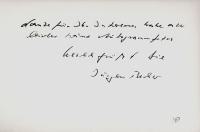 Danke für Ihr Interesse, habe aber
leider keine Autogrammfotos
herzlich grüßt Sie
Jürgen